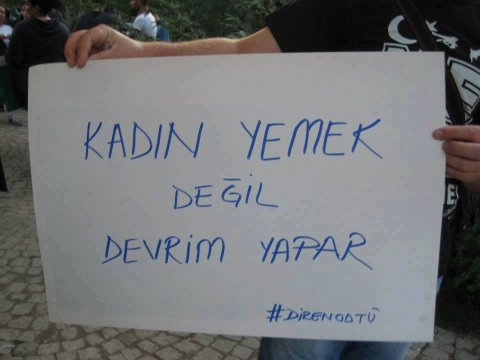 KADIN YEMEK
DEĞİL
DEVRİM YAPAR
#DİRENODTÜ